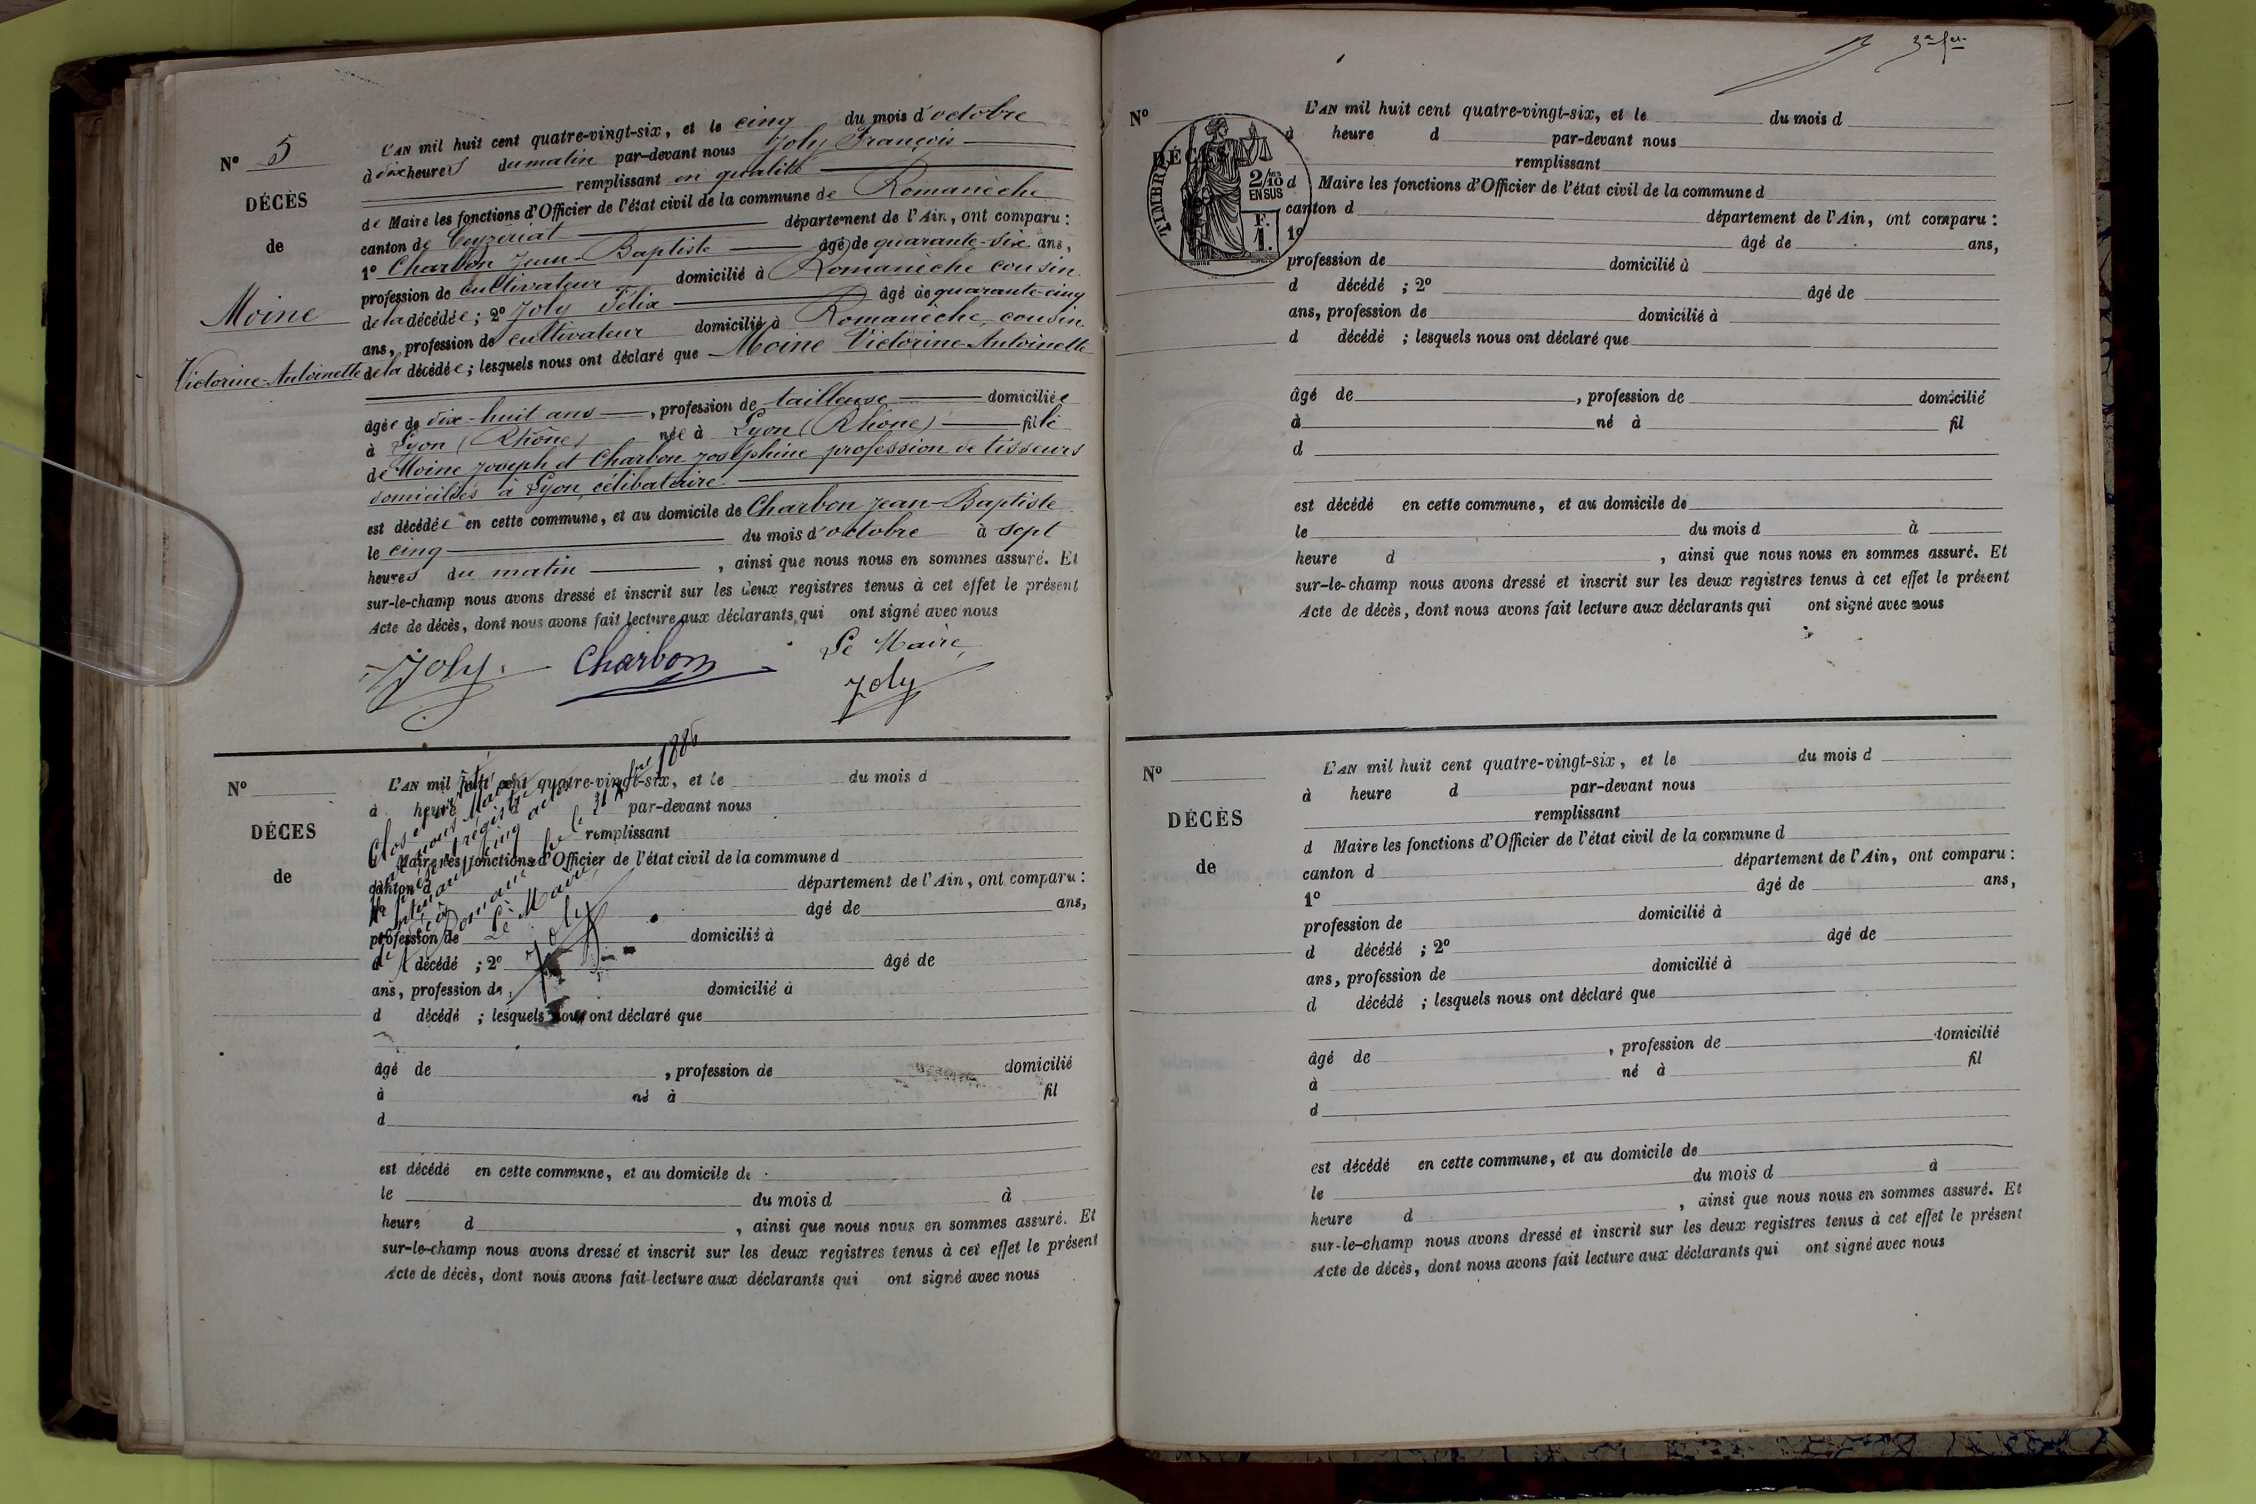 N° 5
DÉCÈS
de
Moine
Victorine-Antoinette
L'AN mil huit cent quatre-vingt-six, et le cinq du mois d'octobre
à dix heures du matin par-devant nous Joly François
remplissant en qualité
de Maire les fonctions d'Officier de l'état civil de la commune de Romanèche
canton de Ceyzériat département de l'Ain, ont comparu :
1° Charbon Jean-Baptiste âgé de quarante-six ans,
profession de cultivateur domicilié à Romanèche cousin
de la décédée ; 2° Joly Félix âgé de quarante-cinq
ans, profession de cultivateur domicilié à Romanèche, cousin
de la décédée ; lesquels nous ont déclaré que Moine Victorine-Antoinette
âgée de dix-huit ans, profession de tailleuse domiciliée
à Lyon (Rhône) née à Lyon (Rhône) fille
de Moine Joseph et Charbon Joséphine profession de tisseurs
domiciliés à Lyon, célibataire
est décédée en cette commune, et au domicile de Charbon Jean-Baptiste
le cinq du mois d'octobre à sept
heures du matin, ainsi que nous nous en sommes assuré. Et
sur-le-champ nous avons dressé et inscrit sur les deux registres tenus à cet effet le présent
Acte de décès, dont nous avons fait lecture aux déclarants qui ont signé avec nous
Joly. Charbon Le Maire,
Joly
N°
DÉCES
de
L'AN mil huit cent quatre-vingt-six, et le du mois d
à heure par-devant nous
remplissant
Maire les fonctions d'Officier de l'état civil de la commune d
canton d département de l'Ain, ont comparu :
âgé de ans,
profession de domicilié à
d décédé ; 2° âgé de
ans, profession de domicilié à
d décédé ; lesquels nous ont déclaré que
âgé de , profession de domicilié
à né à fil
d
est décédé en cette commune, et au domicile de
le du mois d à
heure d , ainsi que nous nous en sommes assuré. Et
sur-le-champ nous avons dressé et inscrit sur les deux registres tenus à cet effet le présent
Acte de décès, dont nous avons fait lecture aux déclarants qui ont signé avec nous
Clos et
registre
cinq actes
le 31 1886
Le Maire
Joly
N°
DÉCÈS
TIMBRE
2/10 EN SUS
F. 1.
L'AN mil huit cent quatre-vingt-six, et le du mois d
à heure d par-devant nous
remplissant
d Maire les fonctions d'Officier de l'état civil de la commune d
canton d département de l'Ain, ont comparu :
1° âgé de ans,
profession de domicilié à
d décédé ; 2° âgé de
ans, profession de domicilié à
d décédé ; lesquels nous ont déclaré que
âgé de , profession de domicilié
à né à fil
d
est décédé en cette commune, et au domicile de
le du mois d à
heure d , ainsi que nous nous en sommes assuré. Et
sur-le-champ nous avons dressé et inscrit sur les deux registres tenus à cet effet le présent
Acte de décès, dont nous avons fait lecture aux déclarants qui ont signé avec nous
N°
DÉCÈS
de
L'AN mil huit cent quatre-vingt-six, et le du mois d
à heure d par-devant nous
remplissant
d Maire les fonctions d'Officier de l'état civil de la commune d
canton d département de l'Ain, ont comparu :
1° âgé de ans,
profession de domicilié à
d décédé ; 2° âgé de
ans, profession de domicilié à
d décédé ; lesquels nous ont déclaré que
âgé de , profession de domicilié
à né à fil
d
est décédé en cette commune, et au domicile de
le du mois d à
heure d , ainsi que nous nous en sommes assuré. Et
sur-le-champ nous avons dressé et inscrit sur les deux registres tenus à cet effet le présent
Acte de décès, dont nous avons fait lecture aux déclarants qui ont signé avec nous